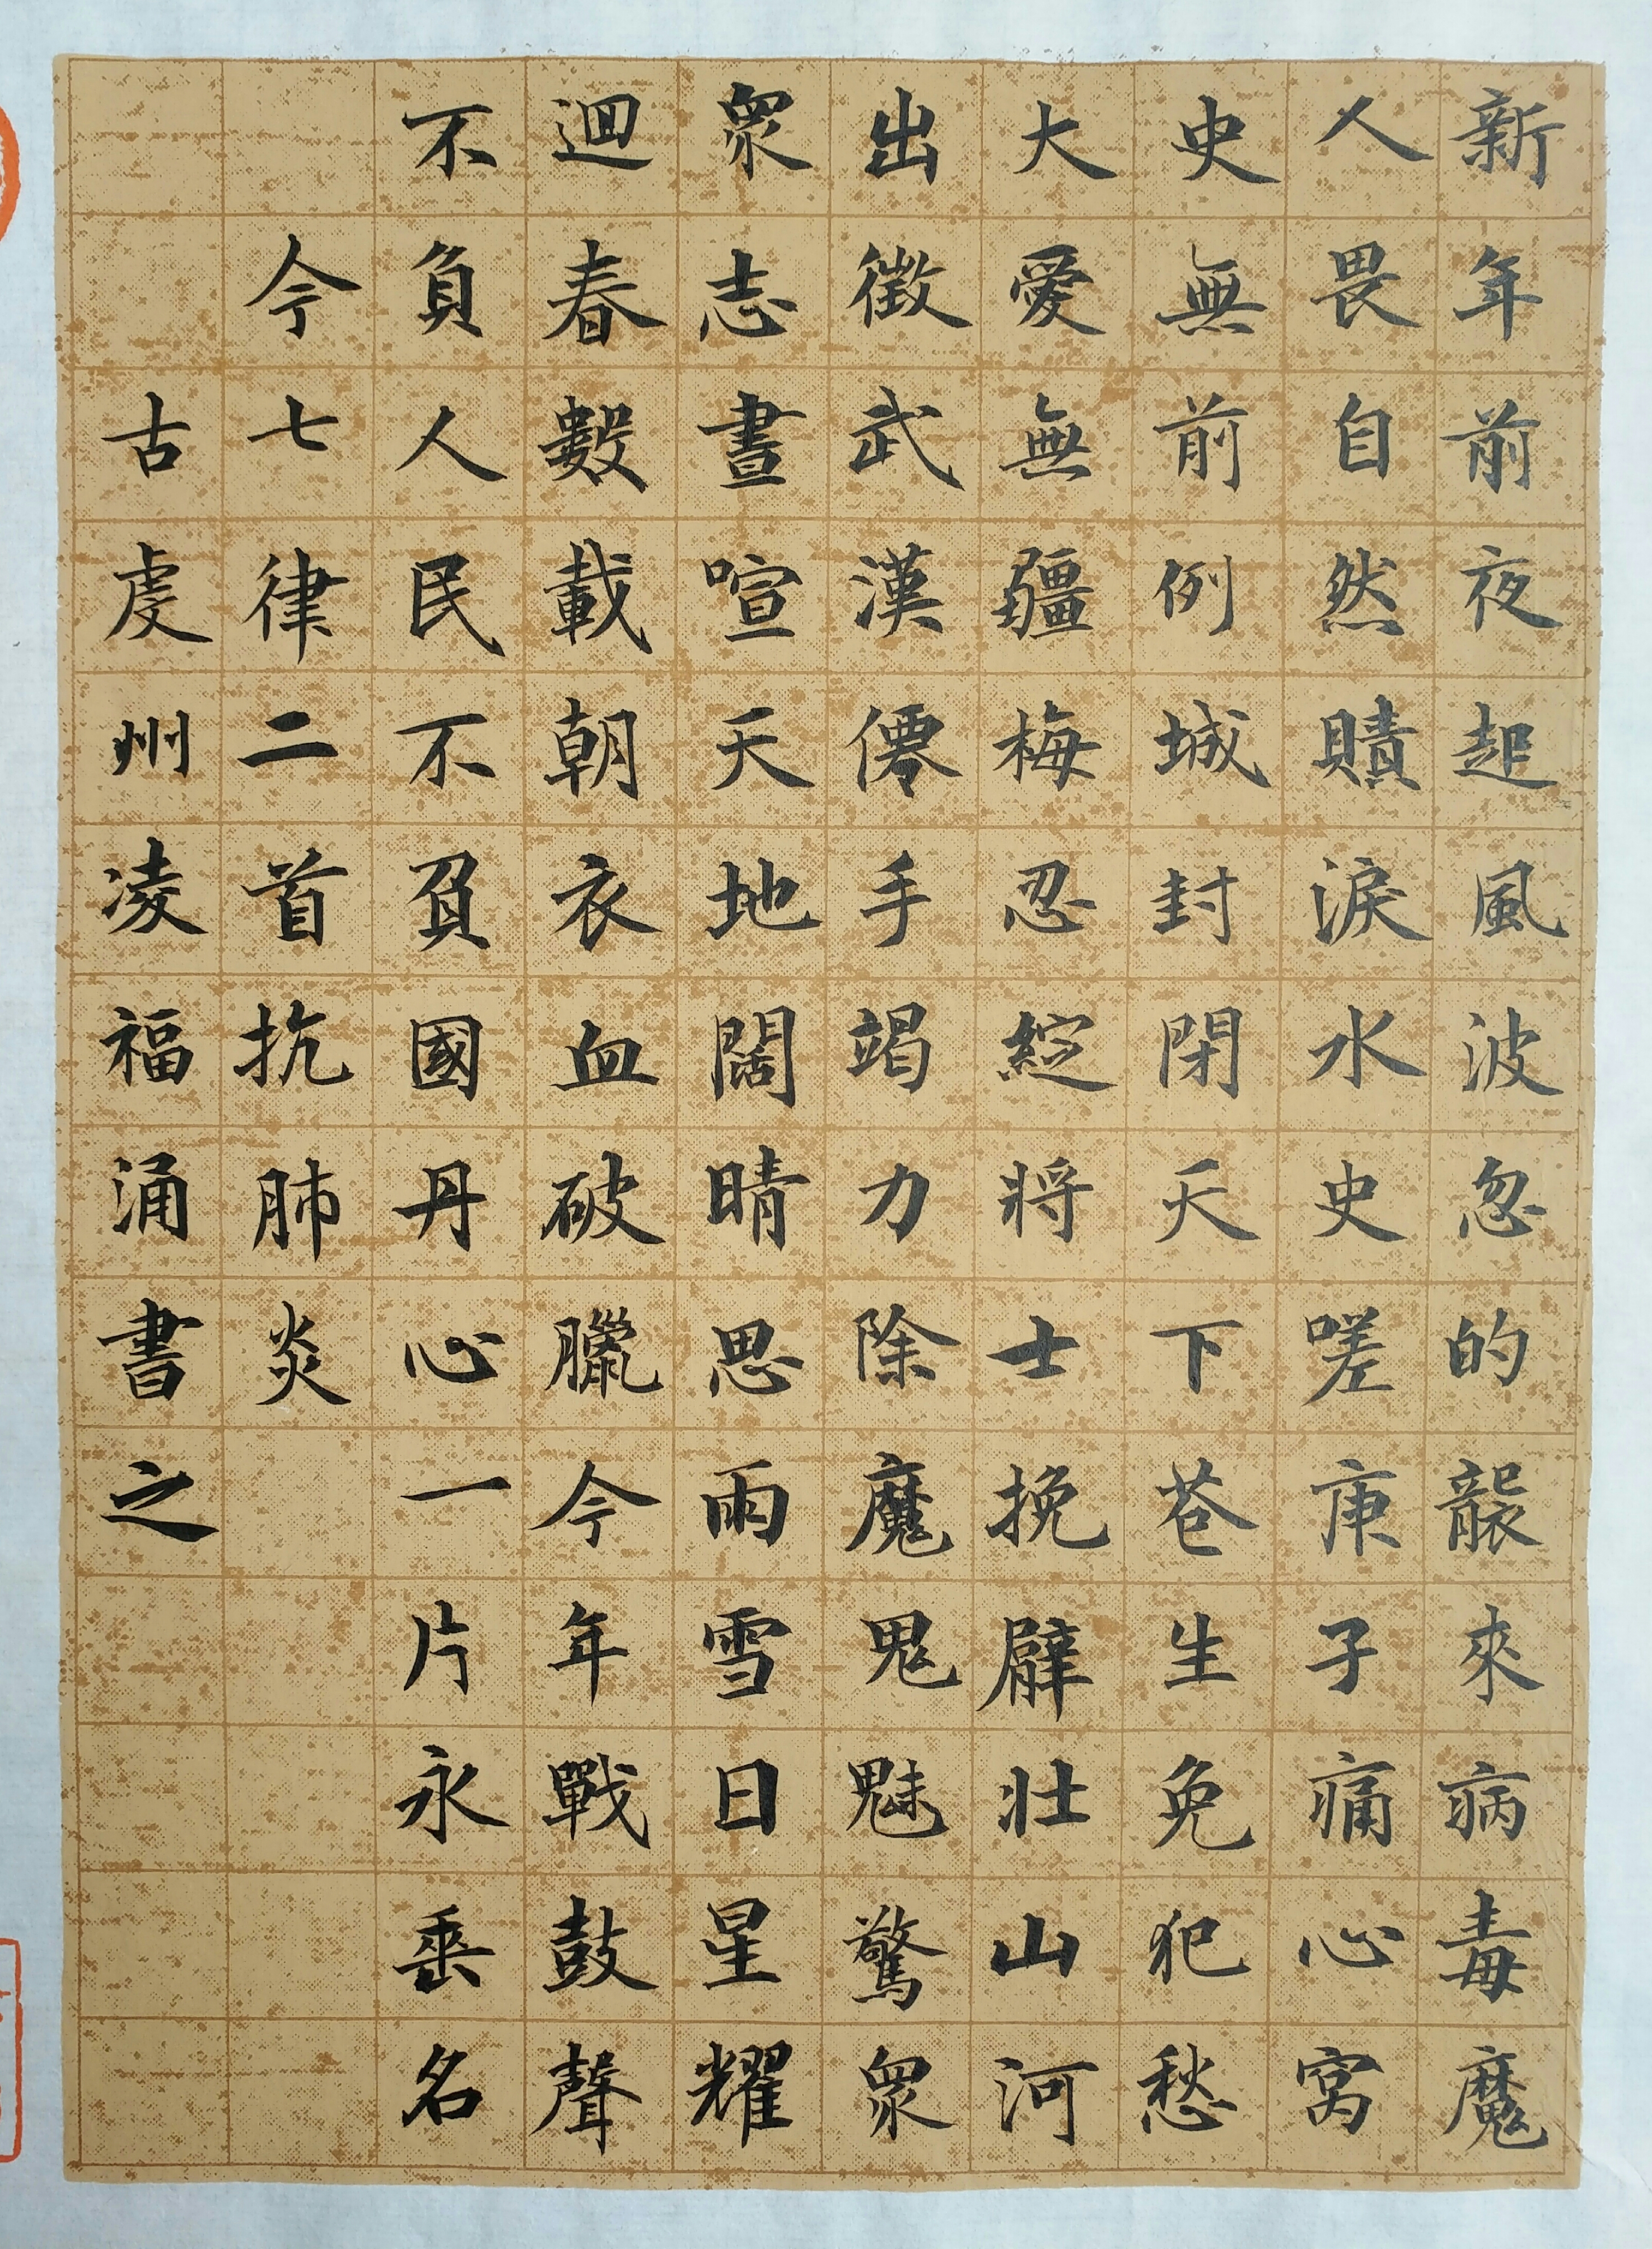 新年前夜起風波忽的襲來病毒魔
人畏自然贖淚水史嗟庚子痛心窩
史無前例城封閉天下苍生免犯愁
大愛無疆梅忍綻將士挽臂壮山河
出徵武漢僊手竭力除魔鬼魅驚衆
衆志晝喧天地闊晴思雨雪日星耀
迴春數載朝衣血破臘今年戰鼓聲
不負人民不負國丹心一片永垂名
今七律二首抗肺炎
古虔州凌福涌書之